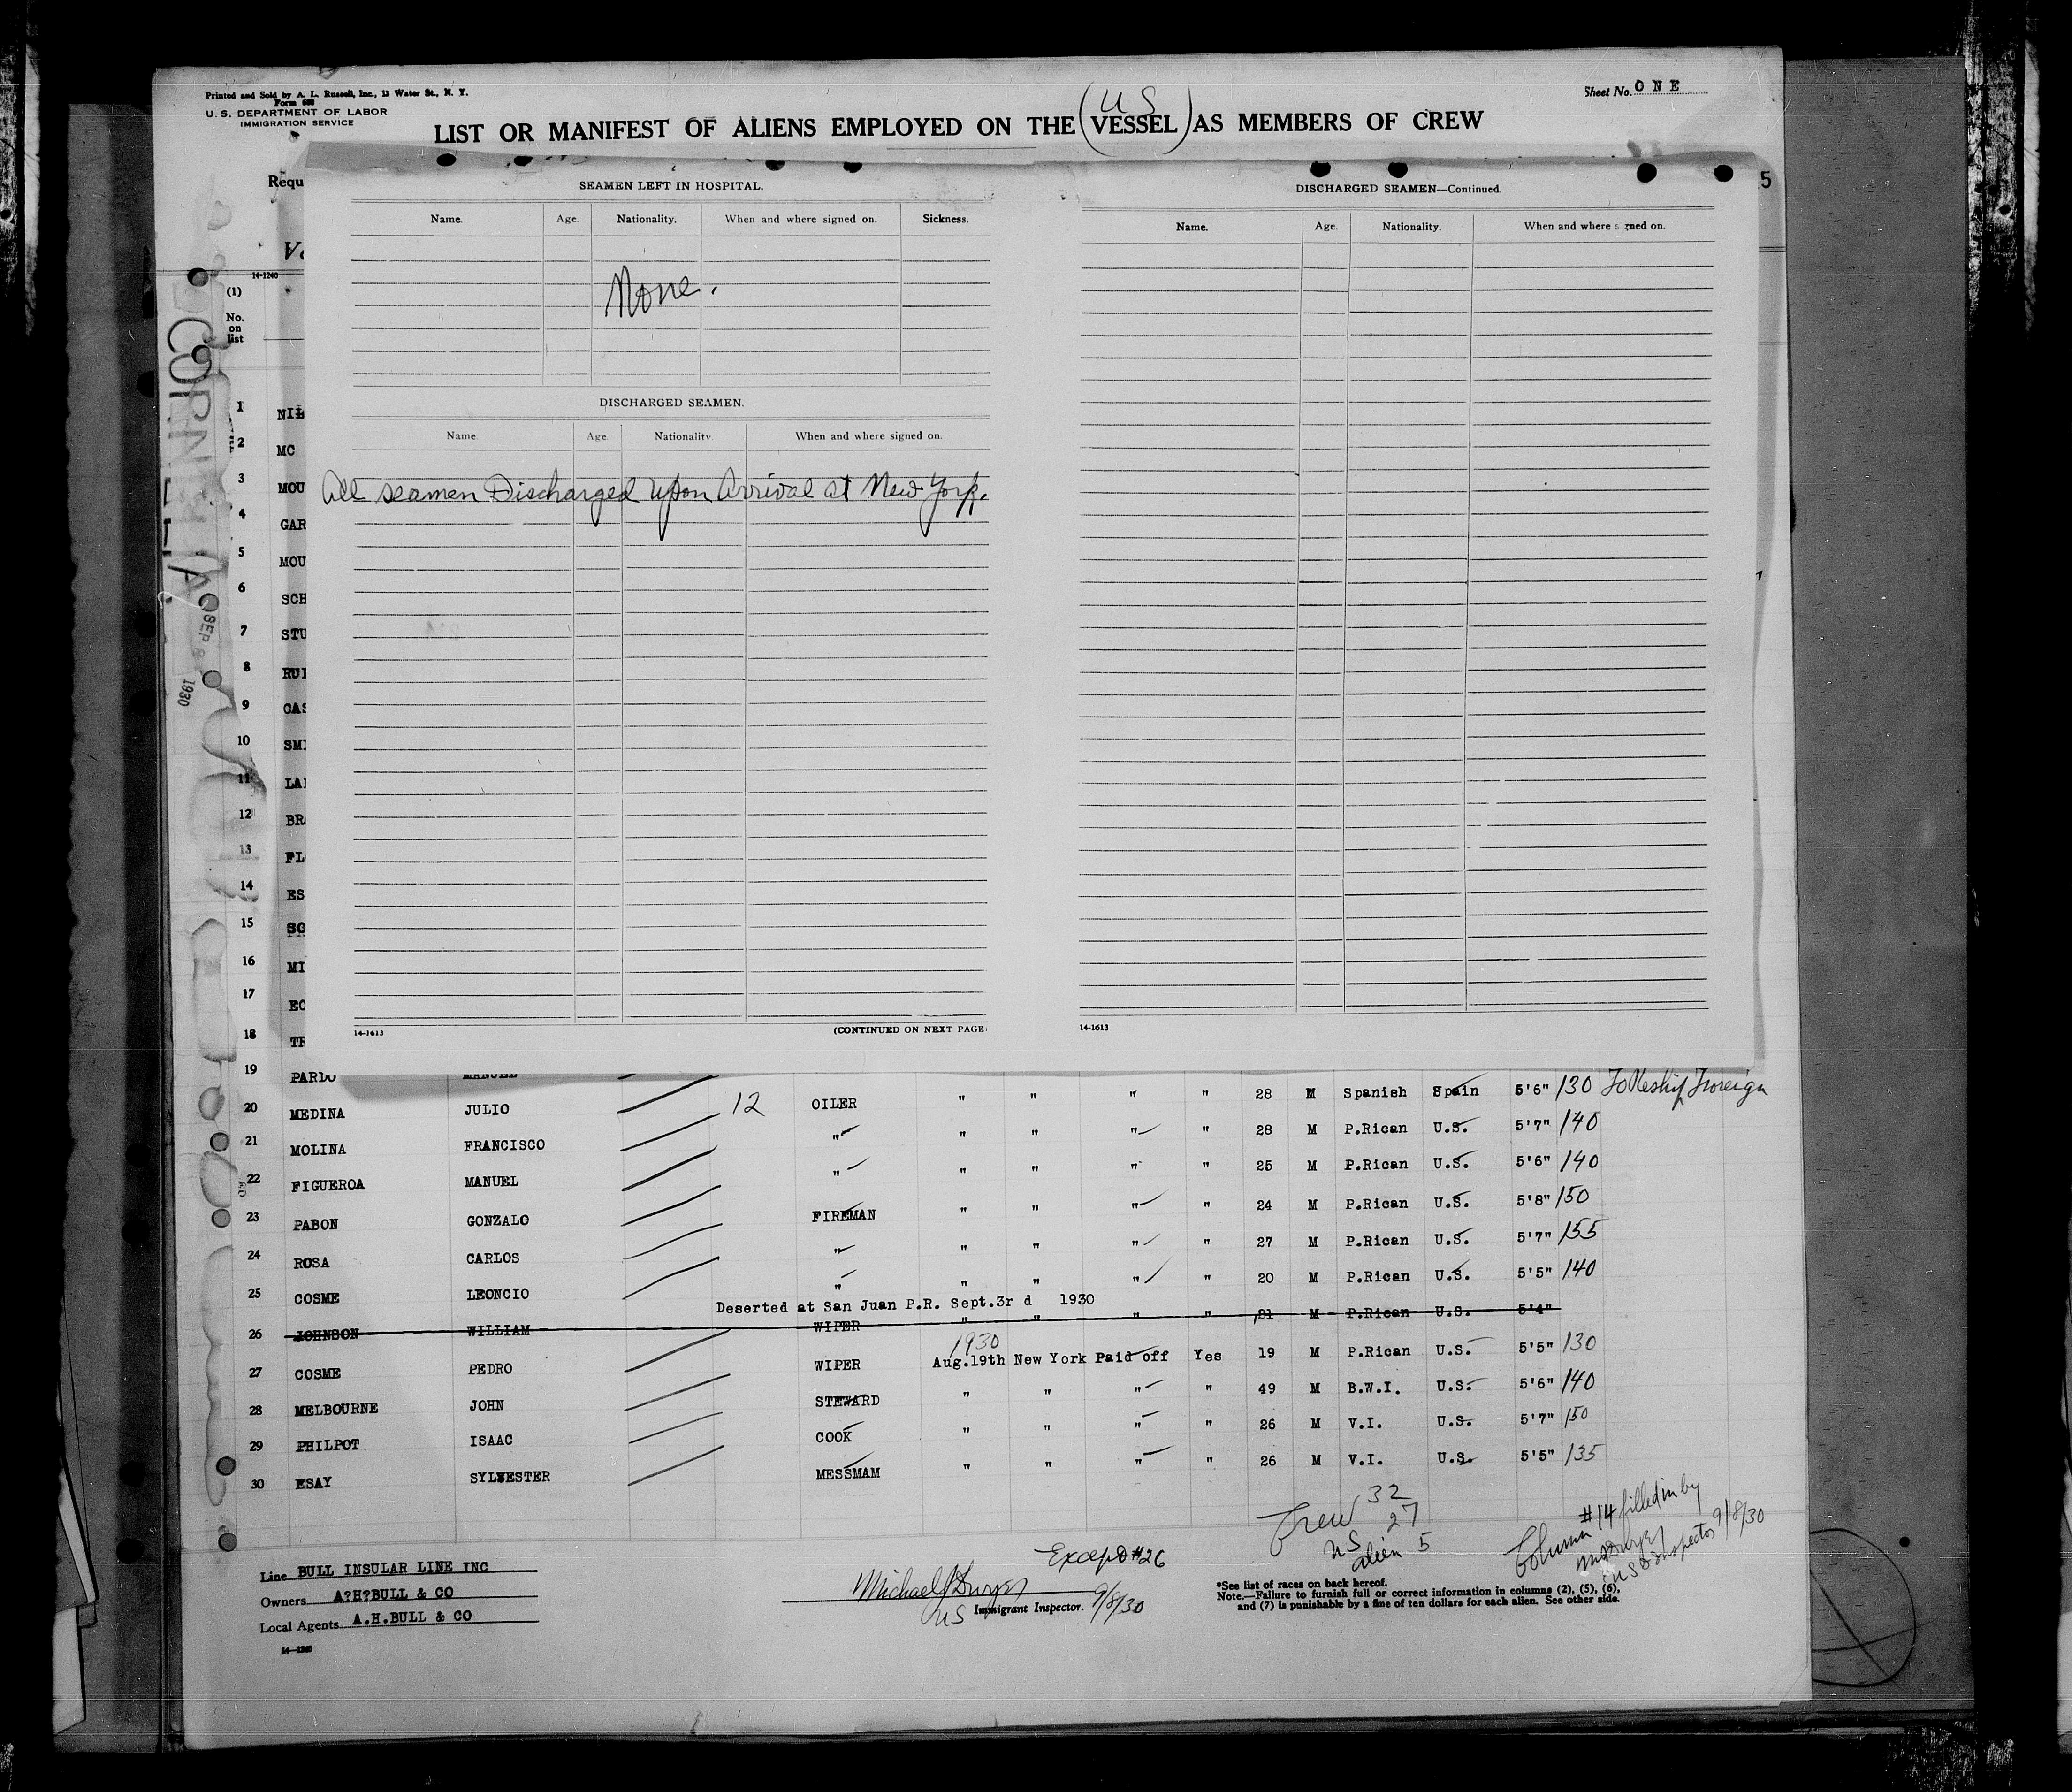 Printed and Sold by A. L. Russell, Inc., 13 Water St., N. Y.
Form 680
U. S. DEPARTMENT OF LABOR
IMMIGRATION SERVICE
Sheet No. ONE
U S
LIST OR MANIFEST OF ALIENS EMPLOYED ON THE (VESSEL) AS MEMBERS OF CREW
Requ
5
SEAMEN LEFT IN HOSPITAL.
Name. Age. Nationality. When and where signed on. Sickness.
None.
DISCHARGED SEAMEN.
Name. Age. Nationality. When and where signed on.
All seamen Discharged upon Arrival at New York.
14-1613 (CONTINUED ON NEXT PAGE
DISCHARGED SEAMEN—Continued.
Name. Age. Nationality. When and where signed on.
14-1613
14-1240
(1)
No.
on
list
SEP 8
1930
1 NIL
2 MC
3 MOU
4 GAR
5 MOU
6 SCH
7 STU
8 RUI
9 CAS
10 SMI
11 LAI
12 BRA
13 FL
14 ES
15 SO
16 MI
17 EC
18 TR
19 PARDO MANUEL
20 MEDINA JULIO 12 OILER " " " " 28 M Spanish Spain 5'6" 130 To Reship Foreign
21 MOLINA FRANCISCO " " " " " 28 M P.Rican U.S. 5'7" 140
22 FIGUEROA MANUEL " " " " " 25 M P.Rican U.S. 5'6" 140
23 PABON GONZALO FIREMAN " " " " 24 M P.Rican U.S. 5'8" 150
24 ROSA CARLOS " " " " " 27 M P.Rican U.S. 5'7" 155
25 COSME LEONCIO " " " " " 20 M P.Rican U.S. 5'5" 140
Deserted at San Juan P.R. Sept.3r d 1930
26 JOHNSON WILLIAM WIPER " " " " 21 M P.Rican U.S. 5'4"
1930
27 COSME PEDRO WIPER Aug.19th New York Paid off Yes 19 M P.Rican U.S. 5'5" 130
28 MELBOURNE JOHN STEWARD " " " " 49 M B.W.I. U.S. 5'6" 140
29 PHILPOT ISAAC COOK " " " " 26 M V.I. U.S. 5'7" 150
30 ESAY SYLVESTER MESSMAM " " " " 26 M V.I. U.S. 5'5" 135
Crew 32
US 27
alien 5
Column #14 filled in by
US Inspector 9/8/30
Except #26
Line BULL INSULAR LINE INC
Owners A?H?BULL & CO
Local Agents A.H.BULL & CO
14—1240
Michael J Dwyer
US Immigrant Inspector. 9/8/30
*See list of races on back hereof.
Note.—Failure to furnish full or correct information in columns (2), (5), (6),
and (7) is punishable by a fine of ten dollars for each alien. See other side.